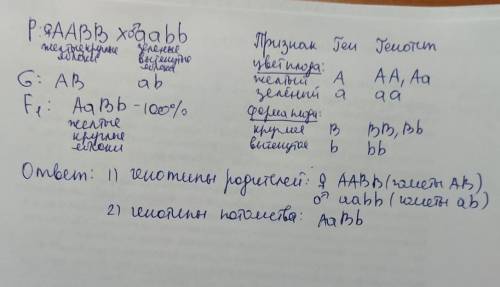 P: ♀AABB x ♂aabb
желтые круглые яблоки
зеленые вытянутые яблоки
G: AB ab
F₁: AaBb - 100%
желтые
круглые
яблоки
Признак Ген Генотип
цвет плода:
желтый A AA, Aa
зелёный a aa
форма плода:
круглая B BB, Bb
вытянутая b bb
Ответ: 1) генотипы родителей: ♀ AABB (гаметы AB)
♂ aabb (гаметы ab)
2) генотипы потомства: AaBb